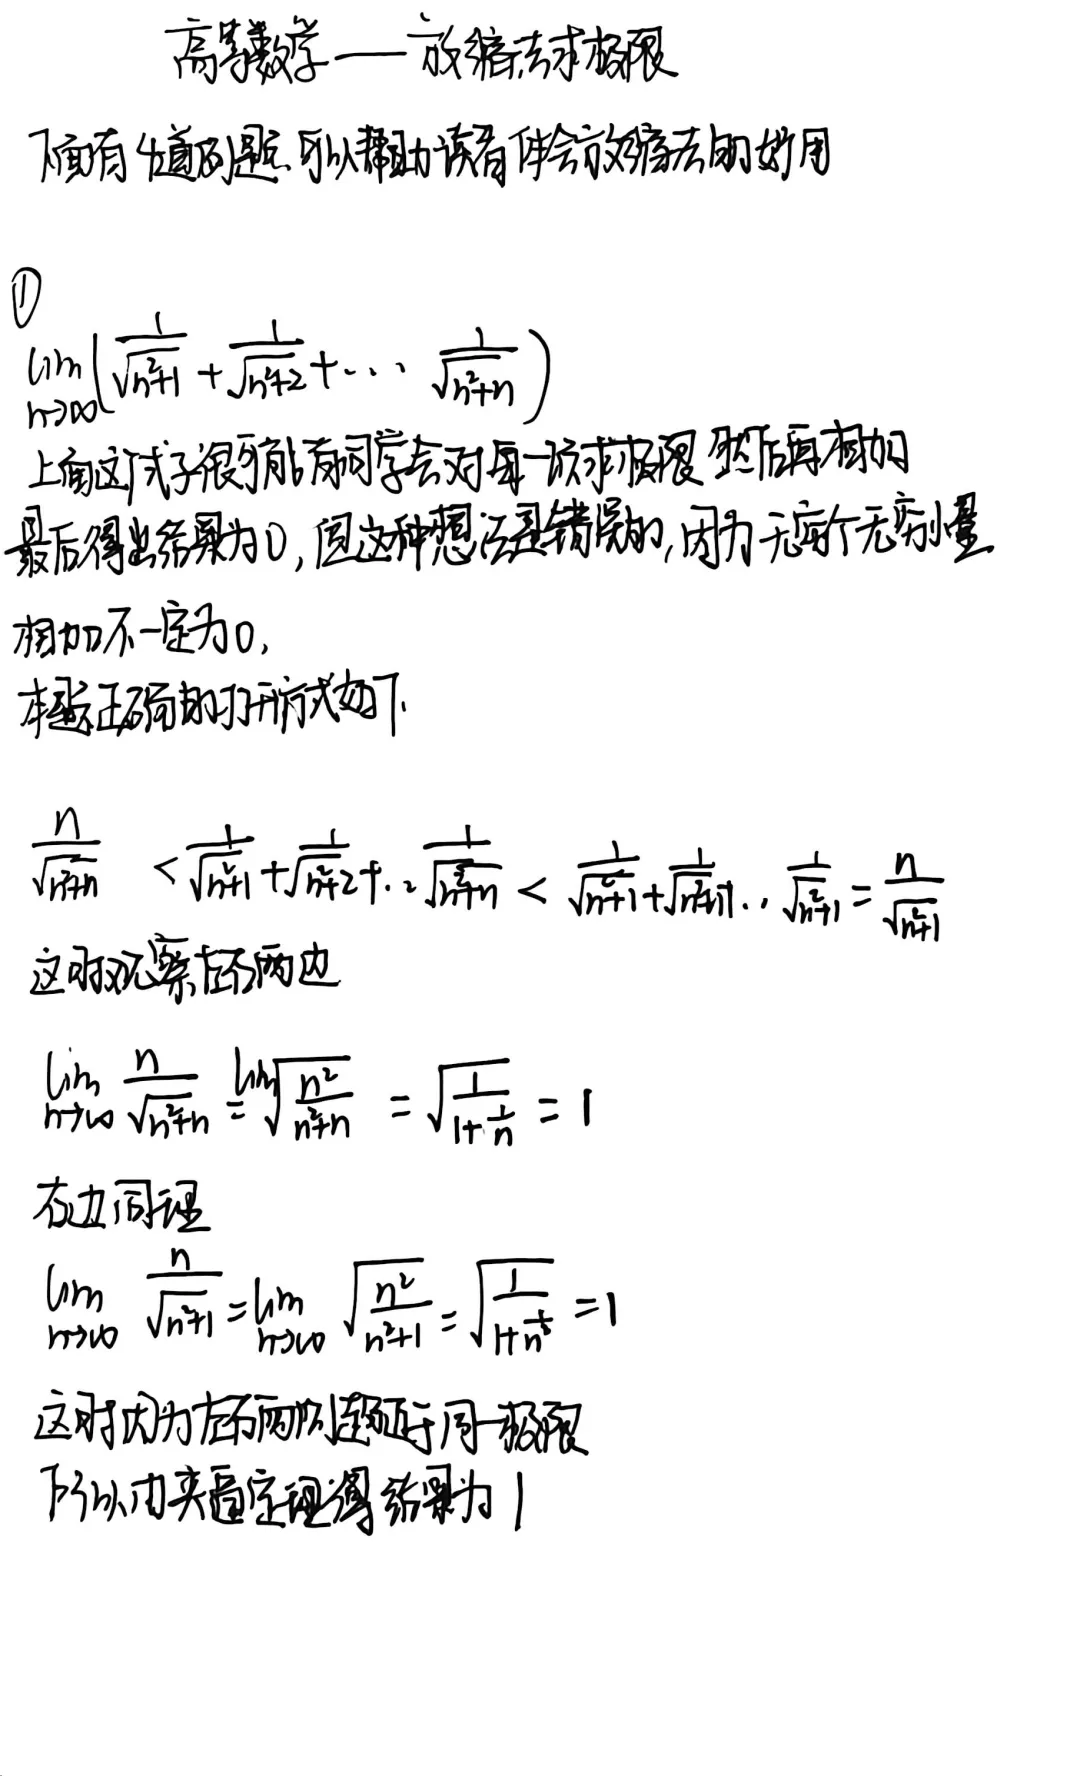 高等数学——放缩法求极限
下面有4道例题，可以帮助读者体会放缩法的妙用
①
lim n→∞ (1/√(n²+1) + 1/√(n²+2) + ··· 1/√(n²+n))
上面这个式子很可能有同学会对每一项求极限 然后再相加
最后得出结果为0，但这种想法是错误的，因为无穷个无穷小量
相加不一定为0，
本题正确的打开方式如下.
n/√(n²+n) < 1/√(n²+1) + 1/√(n²+2) + ·· 1/√(n²+n) < 1/√(n²+1) + 1/√(n²+1) ·· 1/√(n²+1) = n/√(n²+1)
这时观察左右两边
lim n→∞ n/√(n²+n) = lim √(n²/(n²+n)) = √(1/(1+1/n)) = 1
右边同理
lim n→∞ n/√(n²+1) = lim n→∞ √(n²/(n²+1)) = √(1/(1+1/n²)) = 1
这时因为左右两侧趋近于同一极限
所以由夹逼定理得结果为1